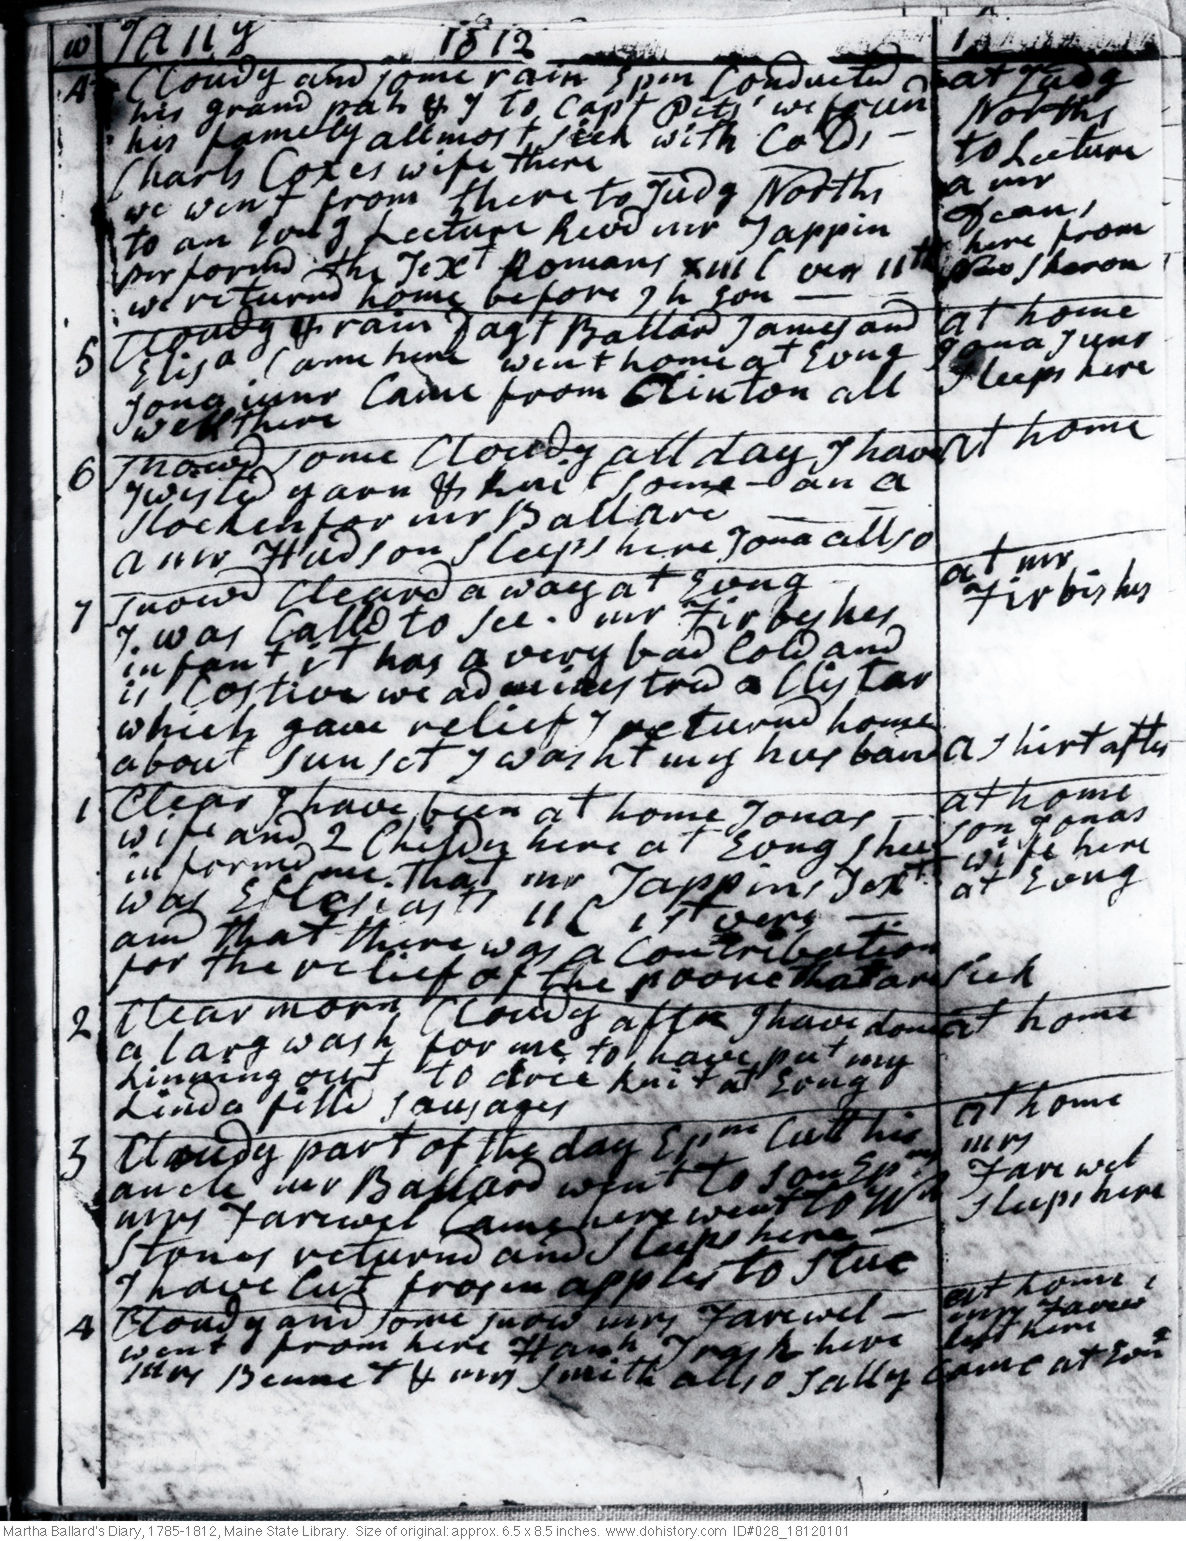 w JANY 1812
4 Cloudy and some rain Epm Conducted at Judg
his grand pah & I to Capt Pits' we foun Norths
his famely allmost sick with Colds – to Lecture
Charls Coxes wife there a mr
we went from there to Judg Norths Deans
to an Evng Lecture Revd mr Tappin here from
performd the Text Romans XIIIC ver 11th New Sharon
we returnd home before 9 h Evn —
5 Cloudy & rain Dagt Ballard James and at home
Elisa Came here went home at Evng Jona Junr
Jona iunr Came from Clinton all sleeps here
well there
6 snowd some Cloudy all day I have at home
twisted yarn & knit some – on a
stocken for mr Ballard
a mr Hudson sleeps here Jona allso
7 snowd Cleard away at Evng at mr
I was Calld to see mr Firbyshes Firbishes
infant it has a very bad Cold and
is Costive we administred a Clistar
which gave relief I returnd home
about sunset I washt my husband a shirt after
1 Clear I have been at home Jonas – at home
wife and 2 Childn here at Evng shee son Jonas
informd me that mr Tappins Text wife here
was Eclesiasts 11 C 1st vers — at Evng
and that there was a Contribation
for the relief of the poore that are sick
2 Clear morn Cloudy after I have done at home
a larg wash for me to have put my
Linning out to dree knit at Evng
Linda filld sausages
3 Cloudy part of the day Epm Cutt his at home
uncle mr Ballard went to son Epms mrs
mrs Farewel Came here went to Wm Farewel
Stones returnd and sleeps here – sleeps here
I have Cut frosen apples to stue
4 Cloudy and some snow mrs Farewel – at home
went from here Hanh Trask here mrs Farewel
Mrs Bennet & mrs Smith allso Sally Came at Evn left here
Martha Ballard's Diary, 1785-1812, Maine State Library. Size of original: approx. 6.5 x 8.5 inches. www.dohistory.com ID#028_18120101